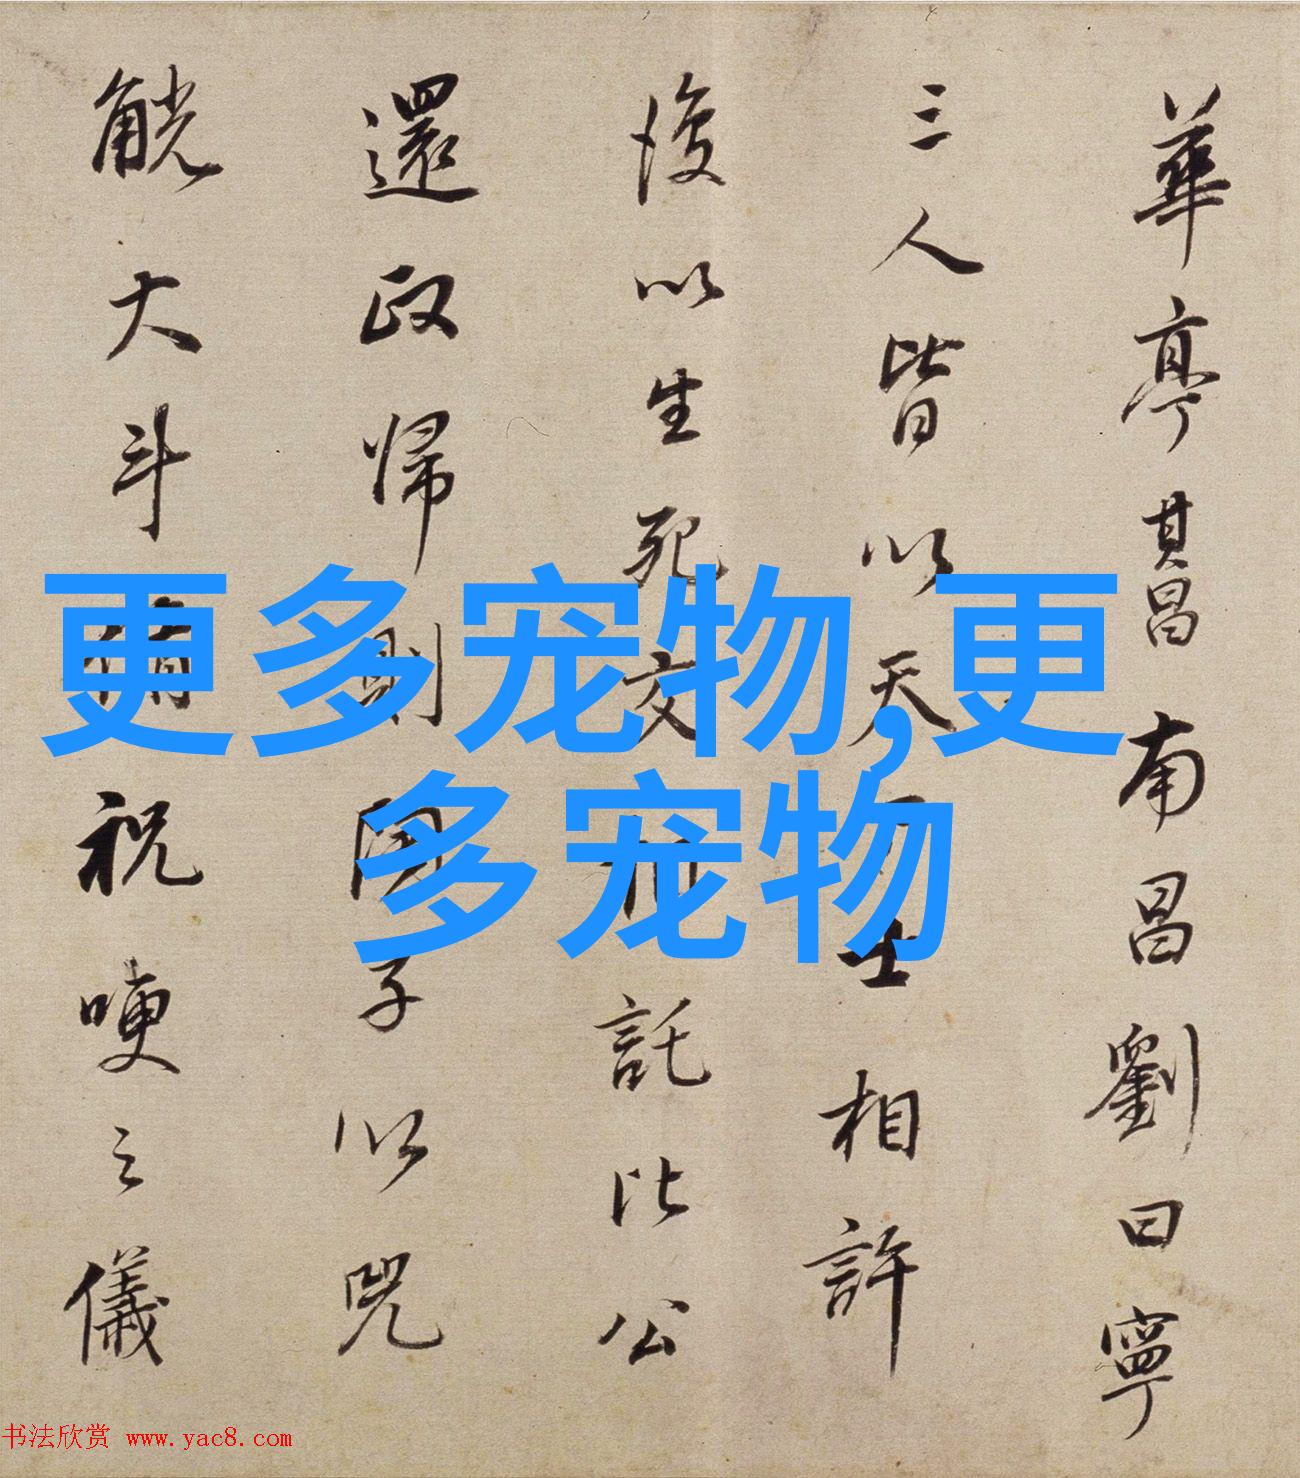 華亭其昌南昌劉曰寧
三人皆以天士相許
復以生死交託比公
還政歸則子以兕
觥大斗祝哽之儀
更多宠物,更
多宠物
书法欣赏 www.yac8.com